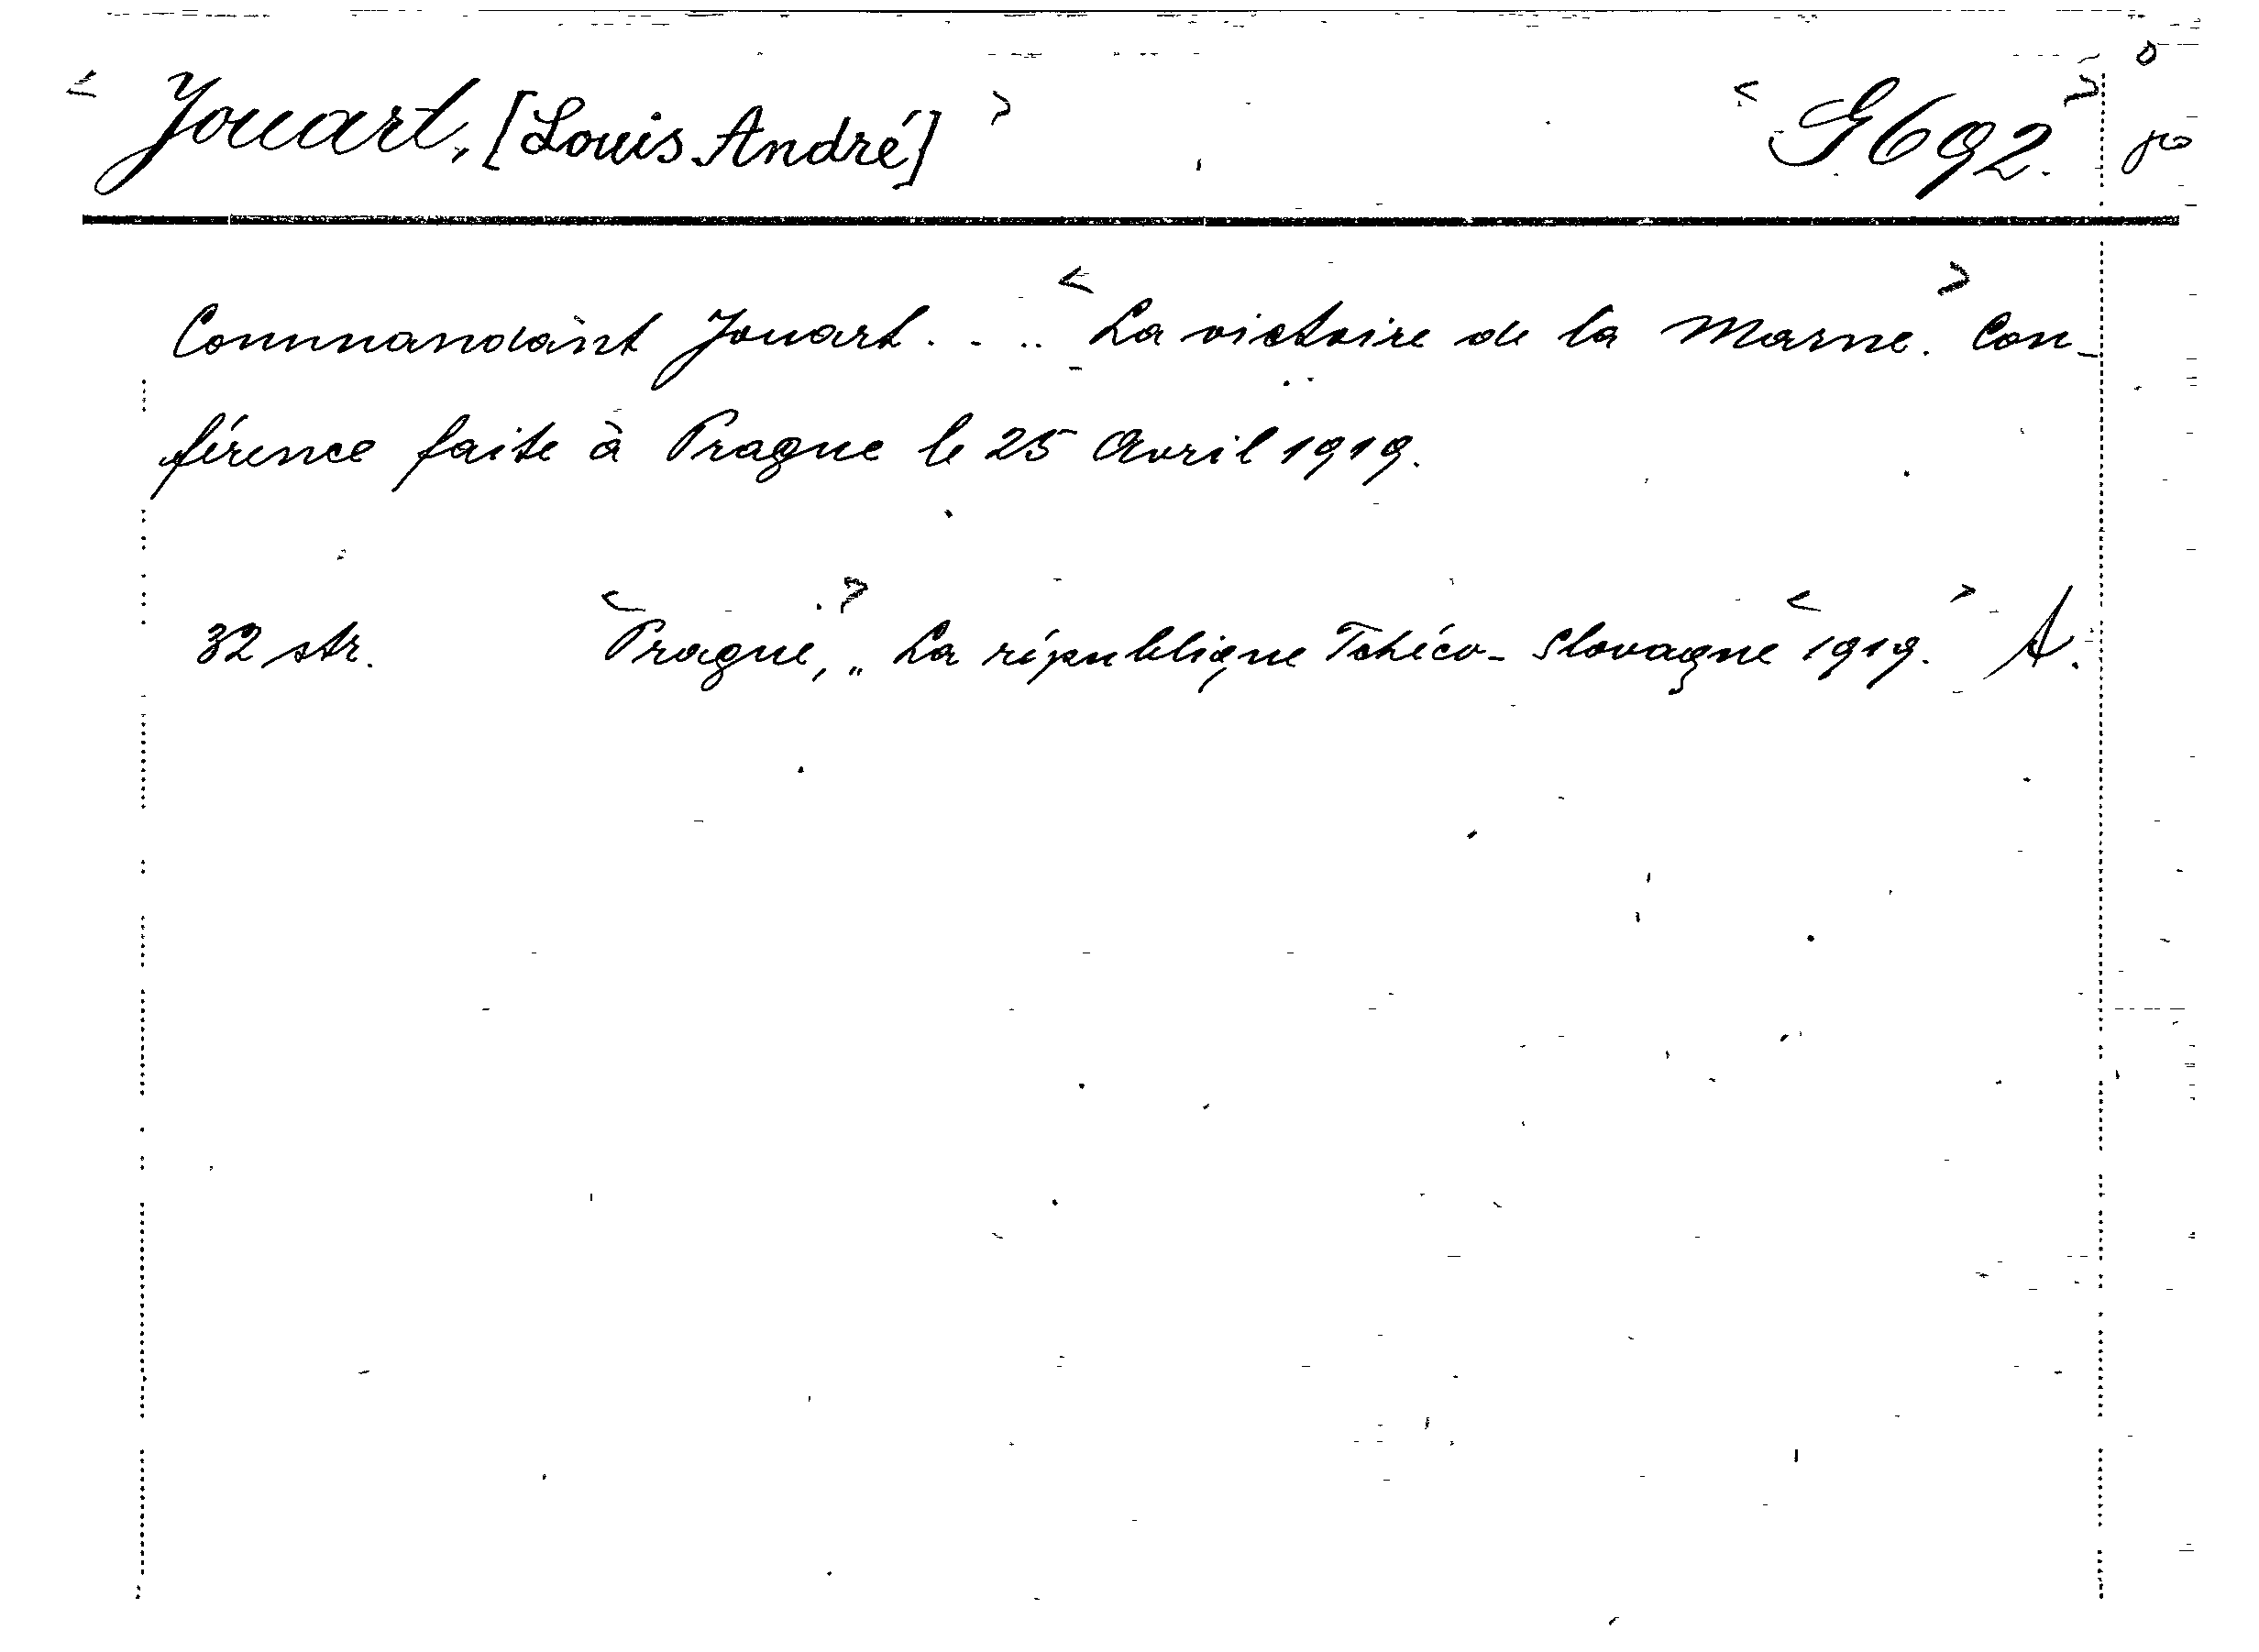 < Jouart, [Louis André] > < G 692. >
Commandant Jouart . . .. < La victoire de la Marne. > Con-
férence faite à Prague le 25 Avril 1919.
32 str. < Prague, > „ La république Tchéco-Slovaque < 1919. > A.